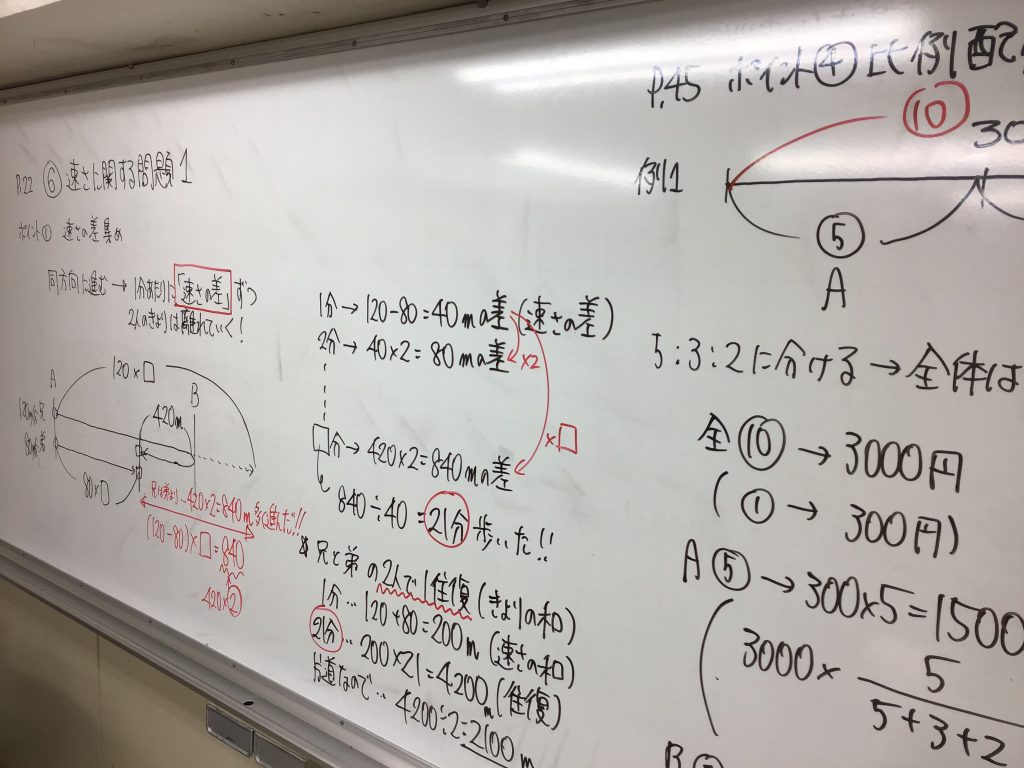 P.22 ⑥ 速さに関する問題1
ポイント① 速さの差集め
同方向に進む → 1分あたりに「速さの差」ずつ
2人のきょりは離れていく!
120×□
A
B
420m
120m/分 兄
80m/分 弟
80×□
兄は弟より…420×2=840m 多く進んだ!!
(120-80)×□=840
420×2
1分→120-80=40mの差(速さの差)
2分→40×2=80mの差
×2
×□
□分→420×2=840mの差
840÷40=21分 歩いた!!
兄と弟の2人で1往復(きょりの和)
1分…120+80=200m(速さの和)
21分…200×21=4200m(往復)
片道なので…4200÷2=2100m
P.45 ポイント④ 比例配
⑩
30
例1
⑤
A
5:3:2に分ける→全体は
全⑩→3000円
(①→300円)
A⑤→300×5=1500
(3000× 5
5+3+2
B